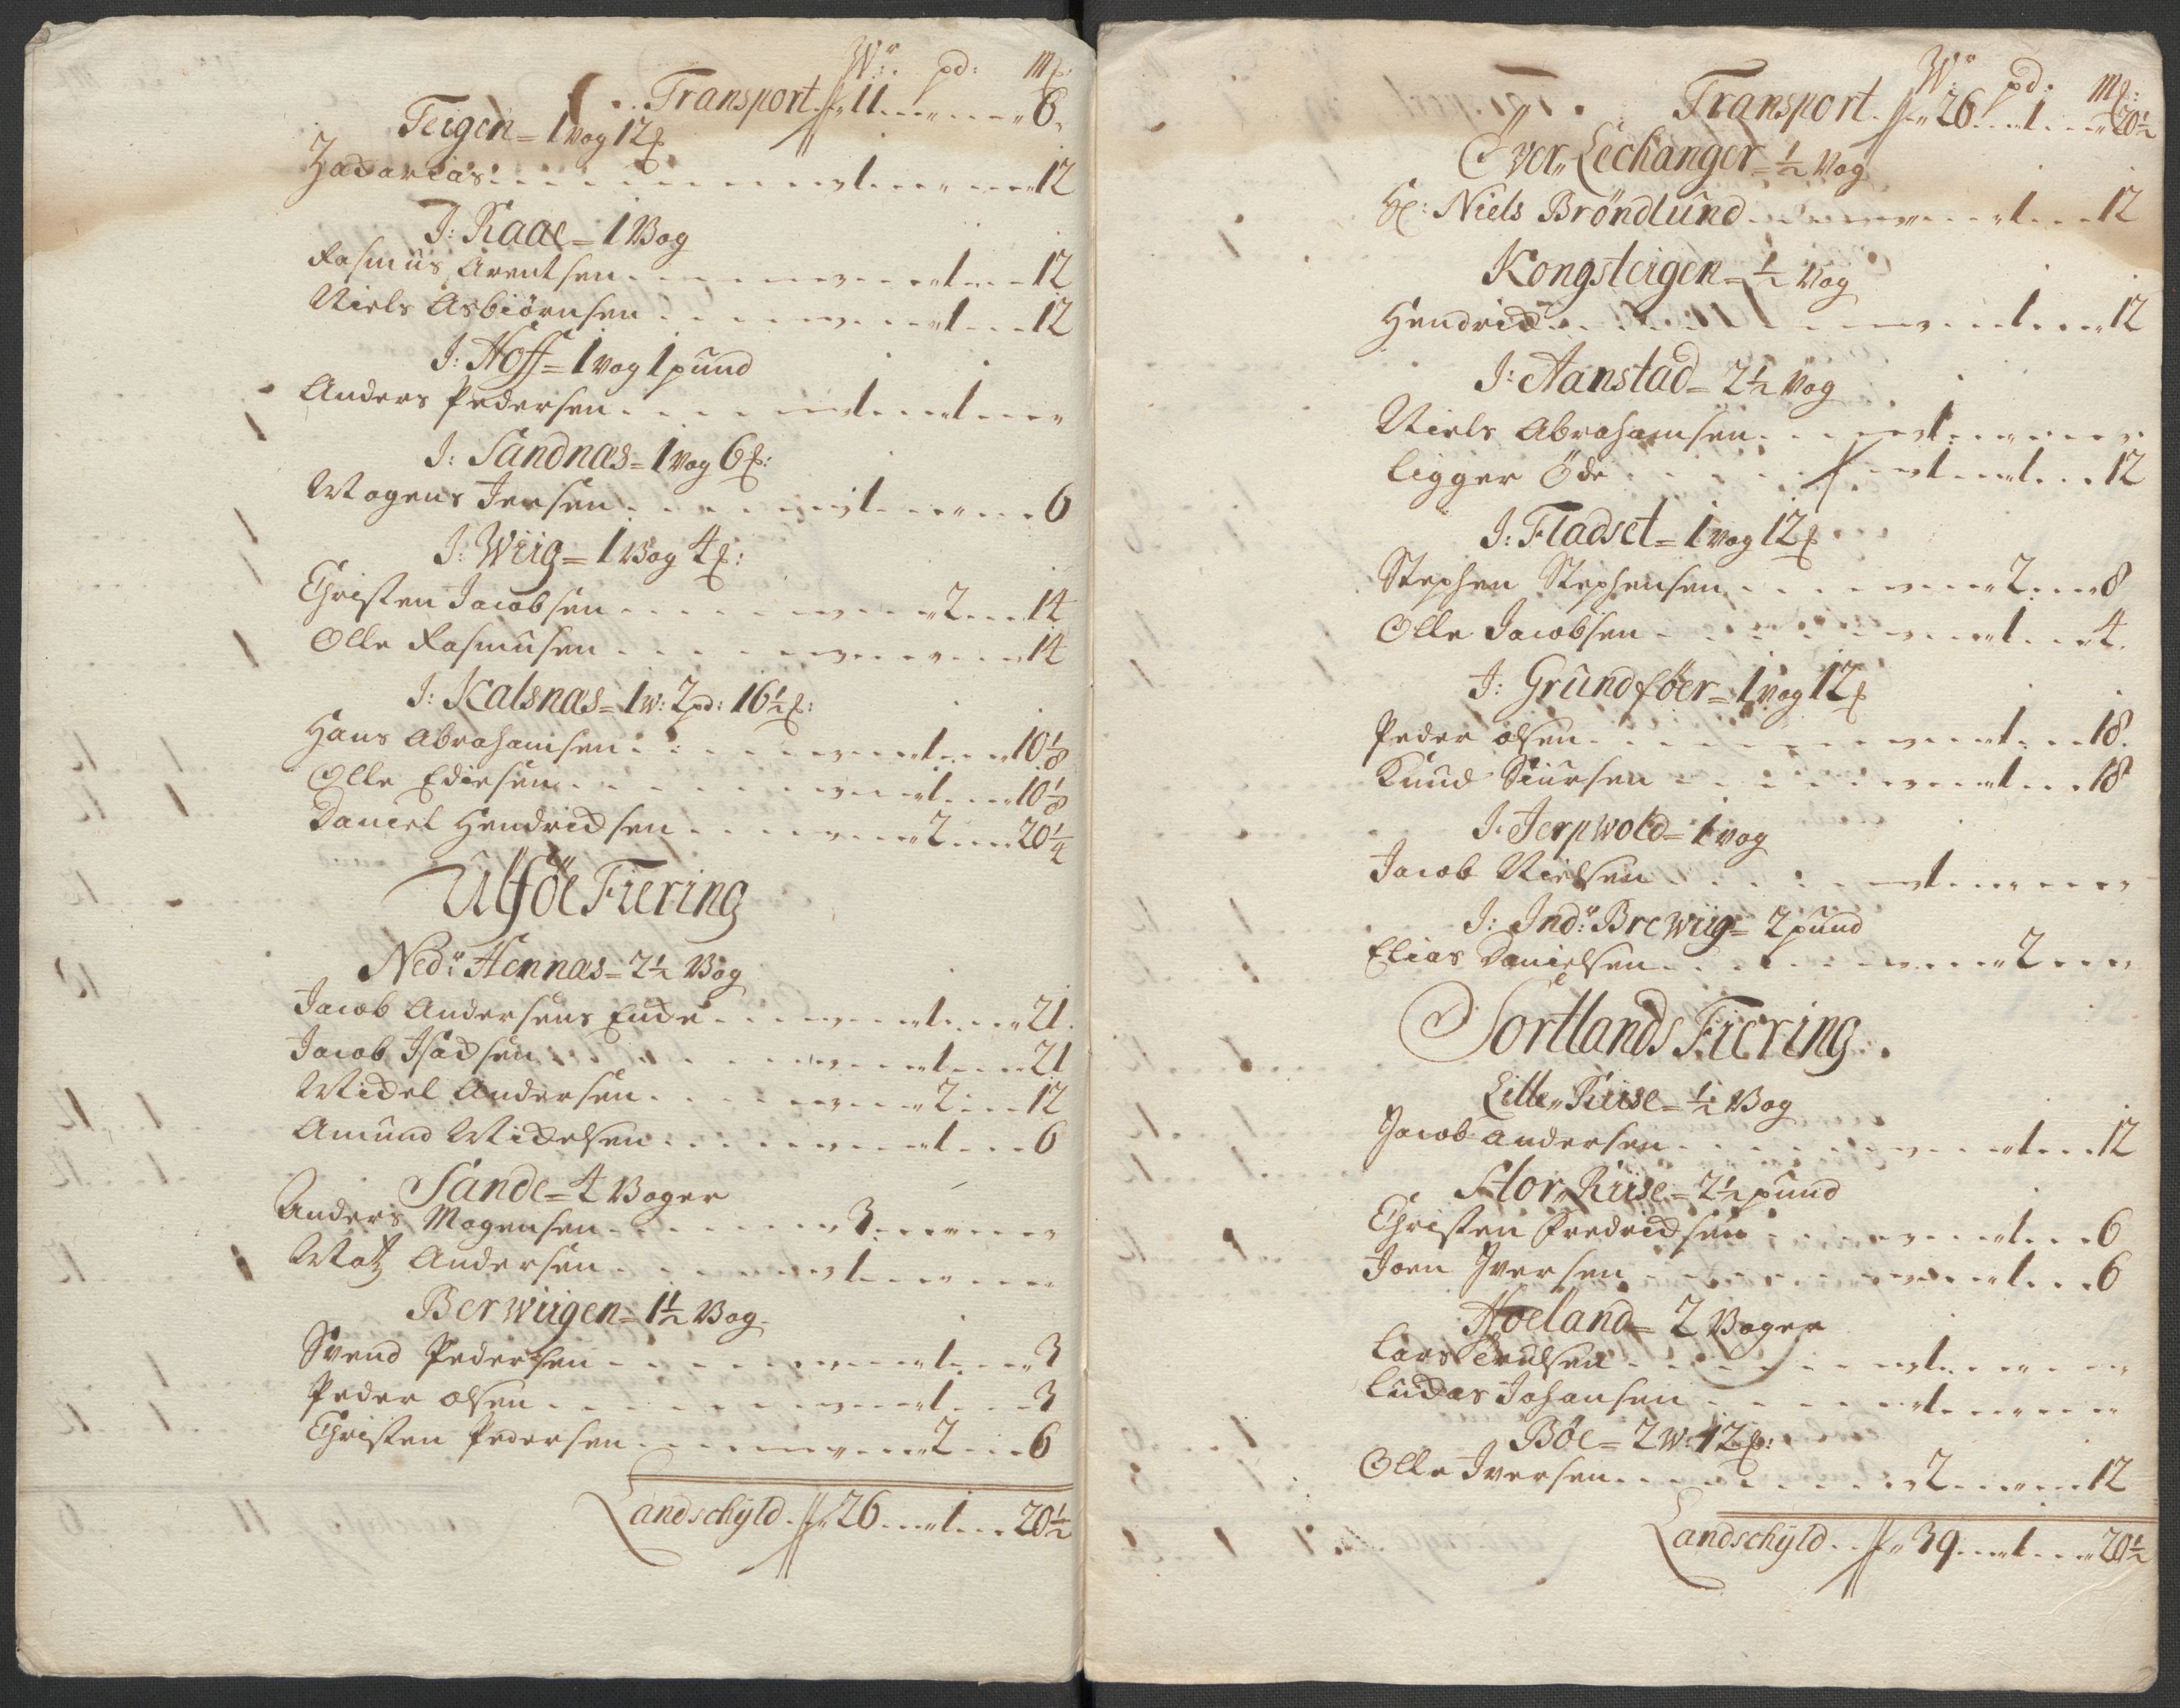 Wr: pd: M℔:
Transport 11 " 6
Teigen = 1 Vog 12℔
Zacharias 1 " 12
J: Kaae = 1 Vog
Rasmus Arentsen " 1 12
Niels Asbiørnsen " 1 12
J: Hoff = 1 Vog 1 pund
Anders Pedersen 1 1 "
J: Sandnas = 1 Vog 6℔:
Mogens Jensen 1 " 6
J: Wiig = 1 Vog 4℔:
Christen Jacobsen " 2 14
Olle Rasmusen " " 14
J: Kalsnas = 1 w: 2 pd: 16½℔:
Hans Abrahamsen " 1 10⅛
Olle Edissen " 1 10⅛
Daniel Hendrichsen " 2 20¼
Ulföe Fiering
Nedr: Hennas = 2½ Vog
Jacob Andersens Encke " 1 21
Jacob Isachsen " 1 21
Michel Andersen " 2 12
Amund Michelsen " 1 6
Sande = 4 Voger
Anders Mogensen 3 " "
Matz Andersen 1 " "
Berwiigen = 1½ Vog
Svend Pedersen " 1 3
Peder Olsen " 1 3
Christen Pedersen " 2 6
Landschyld 26 1 20½
Wr: pd: M℔:
Transport 26 1 20½
Över Lechanger = ½ Vog
Hr: Niels Bröndlund " 1 12
Kongsteigen = ½ Vog
Hendrich " 1 12
J: Aanstad = 2½ Vog
Niels Abrahamsen 1 " "
ligger Öde 1 1 12
J: Fladset = 1 Vog 12℔
Stephen Stephensen " 2 8
Olle Jacobsen " 1 4
J: Grundföer = 1 Vog 12℔
Peder Olsen " 1 18
Knud Siursen " 1 18
J: Jerpwold = 1 Vog
Jacob Nielsen 1 " "
J: Indr: Brewiig = 2 pund
Elias Danielsen " 2 "
Sortlands Fiering
Lille Riise = ½ Vog
Jacob Andersen " 1 12
Stor Riise = 2½ pund
Christen Fredrichsen " 1 6
Joen Iversen " 1 6
Hoeland = 2 Voger
Lars Trulsen 1 " "
Lucas Johansen 1 " "
Böe = 2 w: 12℔:
Olle Iversen 2 " 12
Landschyld 39 1 20½